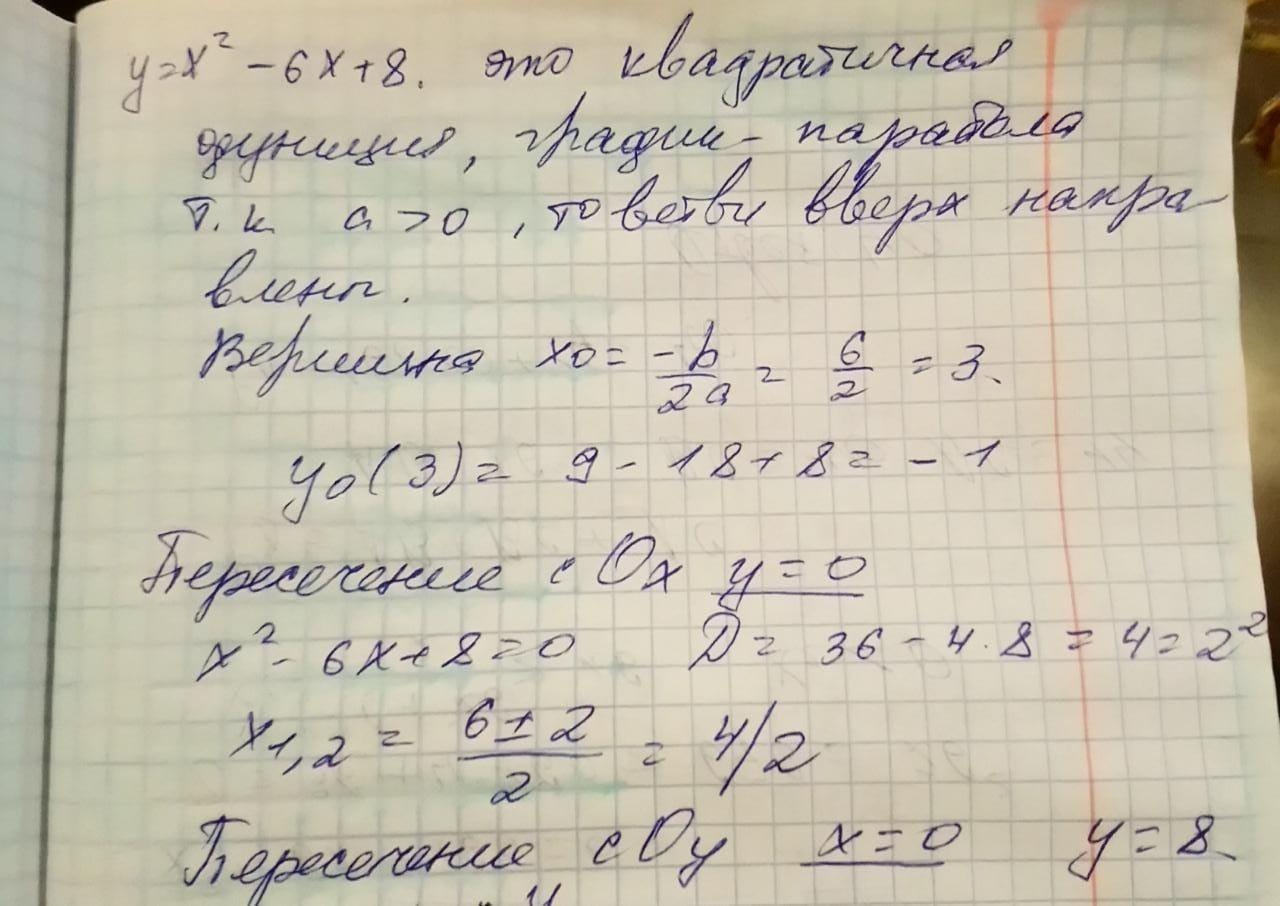 y=x² - 6x+8. это квадратичная
функция, график - парабола
т.к. a>0, то ветви вверх напра-
влены.
Вершина x0 = -b/2a = 6/2 = 3.
y0(3) = 9 - 18+8 = -1
Пересечение с Ox y=0
x² - 6x+8=0 D = 36 - 4·8 = 4 = 2²
x1,2 = 6±2/2 = 4/2
Пересечение с Oy x=0 y=8.